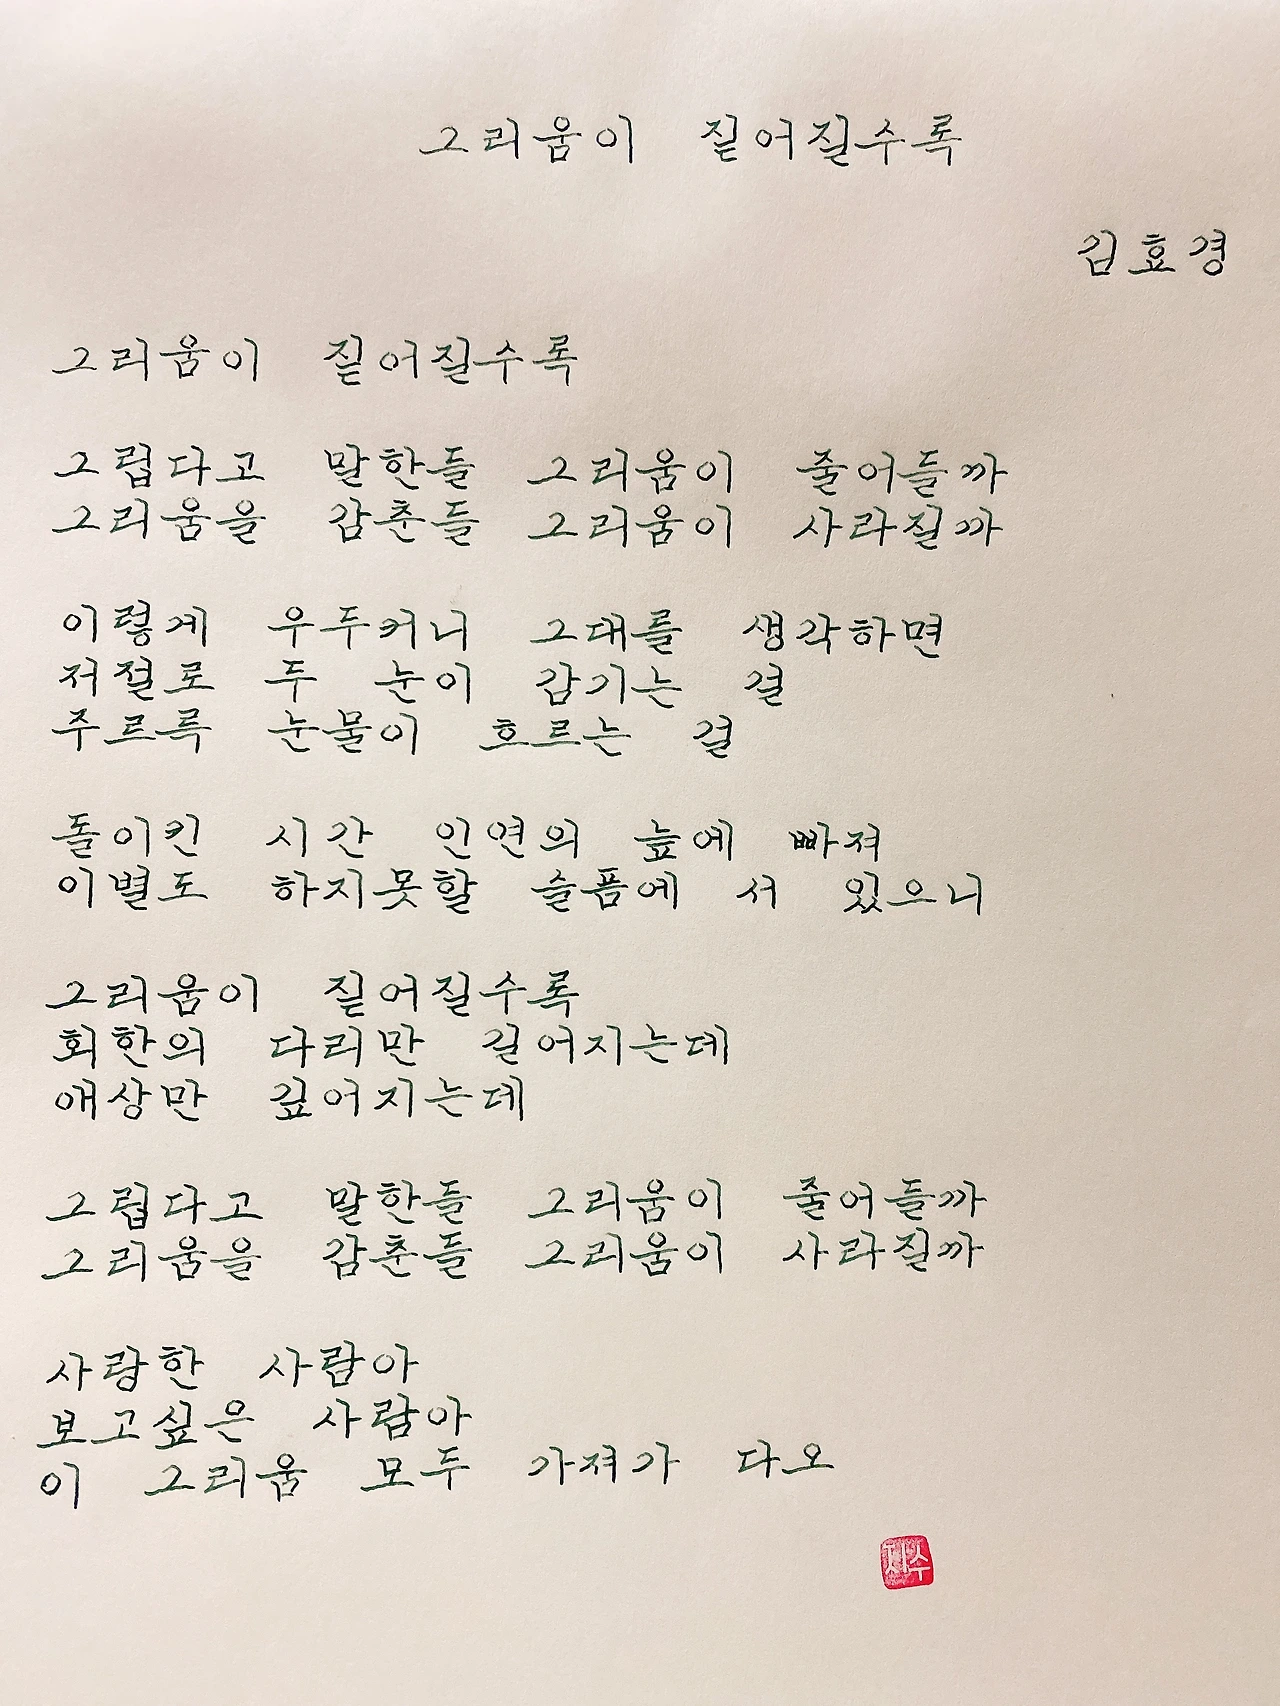 그리움이 짙어질수록
김효경
그리움이 짙어질수록
그립다고 말한들 그리움이 줄어들까
그리움을 감춘들 그리움이 사라질까
이렇게 우두커니 그대를 생각하면
저절로 두 눈이 감기는 걸
주르륵 눈물이 흐르는 걸
돌이킨 시간 인연의 늪에 빠져
이별도 하지못할 슬픔에 서 있으니
그리움이 짙어질수록
회한의 다리만 길어지는데
애상만 깊어지는데
그립다고 말한들 그리움이 줄어들까
그리움을 감춘들 그리움이 사라질까
사랑한 사람아
보고싶은 사람아
이 그리움 모두 가져가 다오